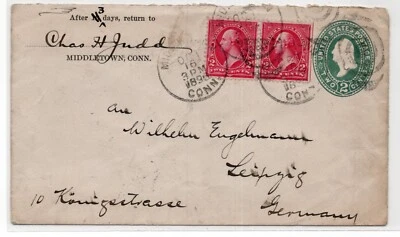 3
After days, return to
Chas H Judd
MIDDLETOWN, CONN.
2 2
CONN.
UNITED STATES POSTAGE
TWO 2 CENTS
an
Wilhelm Engelmann
Leipzig
10 Königsstrasse
Germany